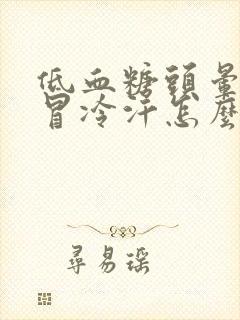 低血糖頭暈
冒冷汗怎麼
尋易瑶